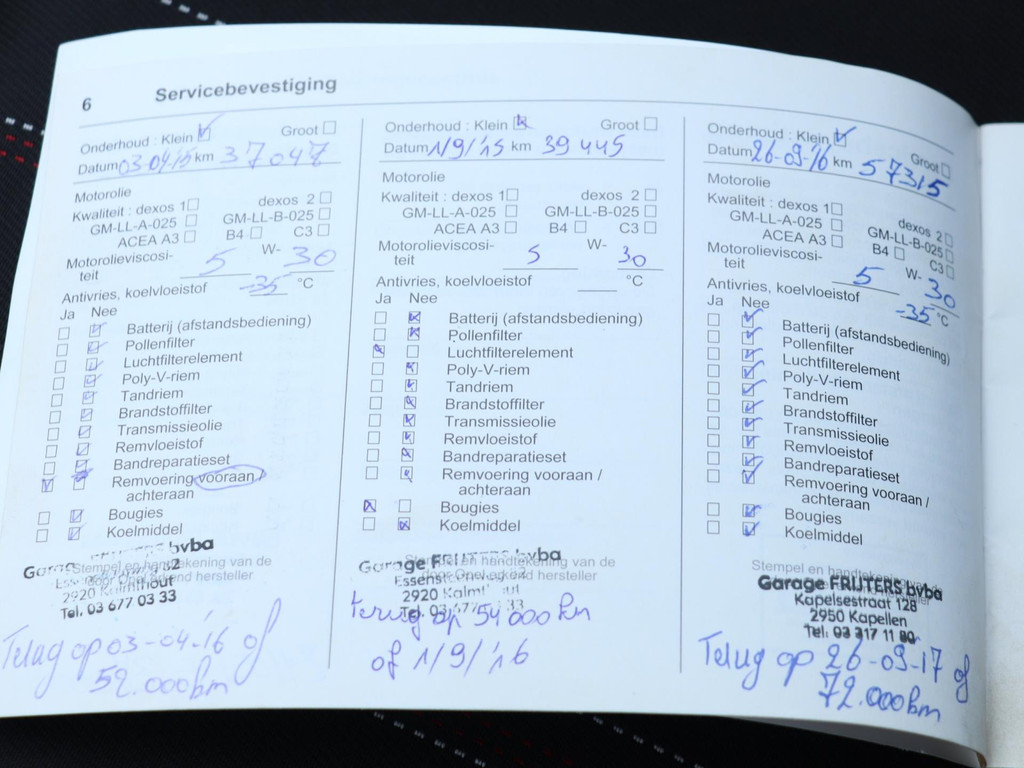 6 Servicebevestiging
Onderhoud : Klein Groot
Datum 03-04-'15 km 37047
Motorolie
Kwaliteit : dexos 1 dexos 2
GM-LL-A-025 GM-LL-B-025
ACEA A3 B4 C3
Motorolieviscosi-
teit 5 W- 30
Antivries, koelvloeistof -35 °C
Ja Nee
Batterij (afstandsbediening)
Pollenfilter
Luchtfilterelement
Poly-V-riem
Tandriem
Brandstoffilter
Transmissieolie
Remvloeistof
Bandreparatieset
Remvoering vooraan /
achteraan
Bougies
Koelmiddel
Stempel en handtekening van de
door Opel erkend hersteller
FRIJTERS bvba
2920 Kalmthout
Tel. 03 677 03 33
Terug op 03-04-'16 of
52.000km
Onderhoud : Klein Groot
Datum 1/9/'15 km 39445
Motorolie
Kwaliteit : dexos 1 dexos 2
GM-LL-A-025 GM-LL-B-025
ACEA A3 B4 C3
Motorolieviscosi-
teit 5 W- 30
Antivries, koelvloeistof °C
Ja Nee
Batterij (afstandsbediening)
Pollenfilter
Luchtfilterelement
Poly-V-riem
Tandriem
Brandstoffilter
Transmissieolie
Remvloeistof
Bandreparatieset
Remvoering vooraan /
achteraan
Bougies
Koelmiddel
Stempel en handtekening van de
door Opel erkend hersteller
Garage FRIJTERS bvba
2920
Tel. 03 677 33
terug op 54000km
of 1/9/'16
Onderhoud : Klein Groot
Datum 26-09-'16 km 57315
Motorolie
Kwaliteit : dexos 1 dexos 2
GM-LL-A-025 GM-LL-B-025
ACEA A3 B4 C3
Motorolieviscosi-
teit 5 W- 30
Antivries, koelvloeistof -35 °C
Ja Nee
Batterij (afstandsbediening)
Pollenfilter
Luchtfilterelement
Poly-V-riem
Tandriem
Brandstoffilter
Transmissieolie
Remvloeistof
Bandreparatieset
Remvoering vooraan /
achteraan
Bougies
Koelmiddel
Stempel en handtekening van de
hersteller
Garage FRIJTERS bvba
Kapelsestraat 128
2950 Kapellen
Tel. 03 317 11 80
Terug op 26-09-17 of
72.000km